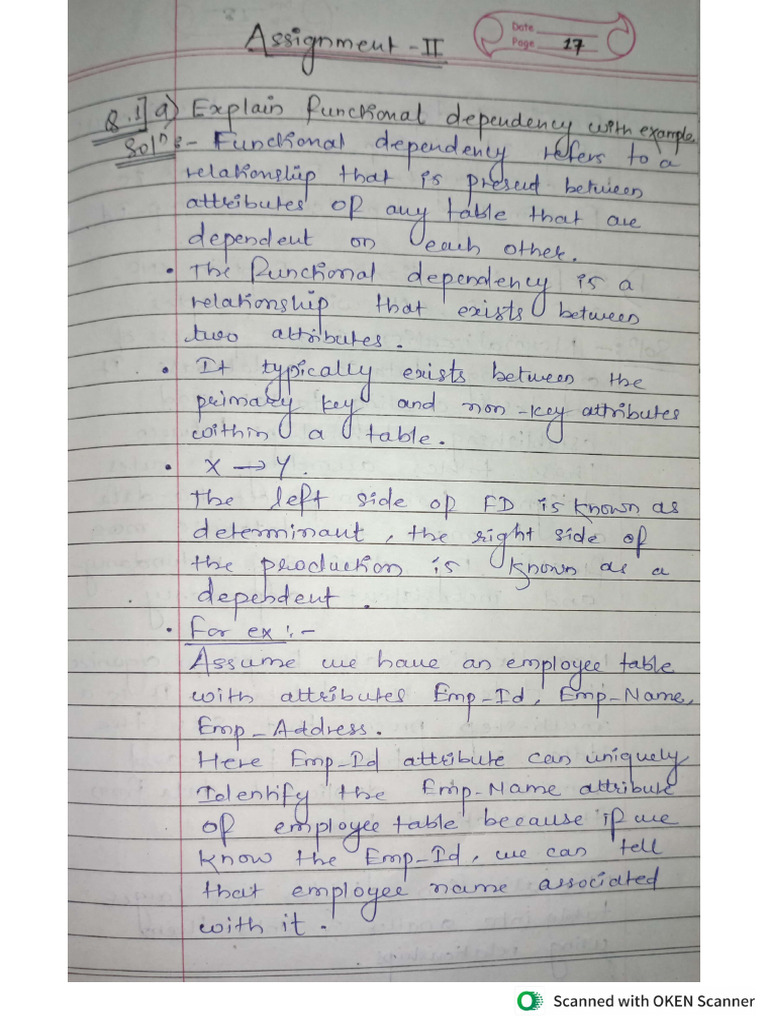 Assignment - II
Date
Page 17
Q.1] a) Explain functional dependency with example
Solⁿ :- Functional dependency refers to a
relationship that is present between
attributes of any table that are
dependent on each other.
• The functional dependency is a
relationship that exists between
two attributes.
• It typically exists between the
primary key and non-key attributes
within a table.
• X → Y.
The left side of FD is known as
determinant, the right side of
the production is known as a
dependent.
• For ex :-
Assume we have an employee table
with attributes Emp-Id, Emp-Name,
Emp-Address.
Here Emp-Id attribute can uniquely
Identify the Emp-Name attribute
of employee table because if we
know the Emp-Id, we can tell
that employee name associated
with it.
Scanned with OKEN Scanner